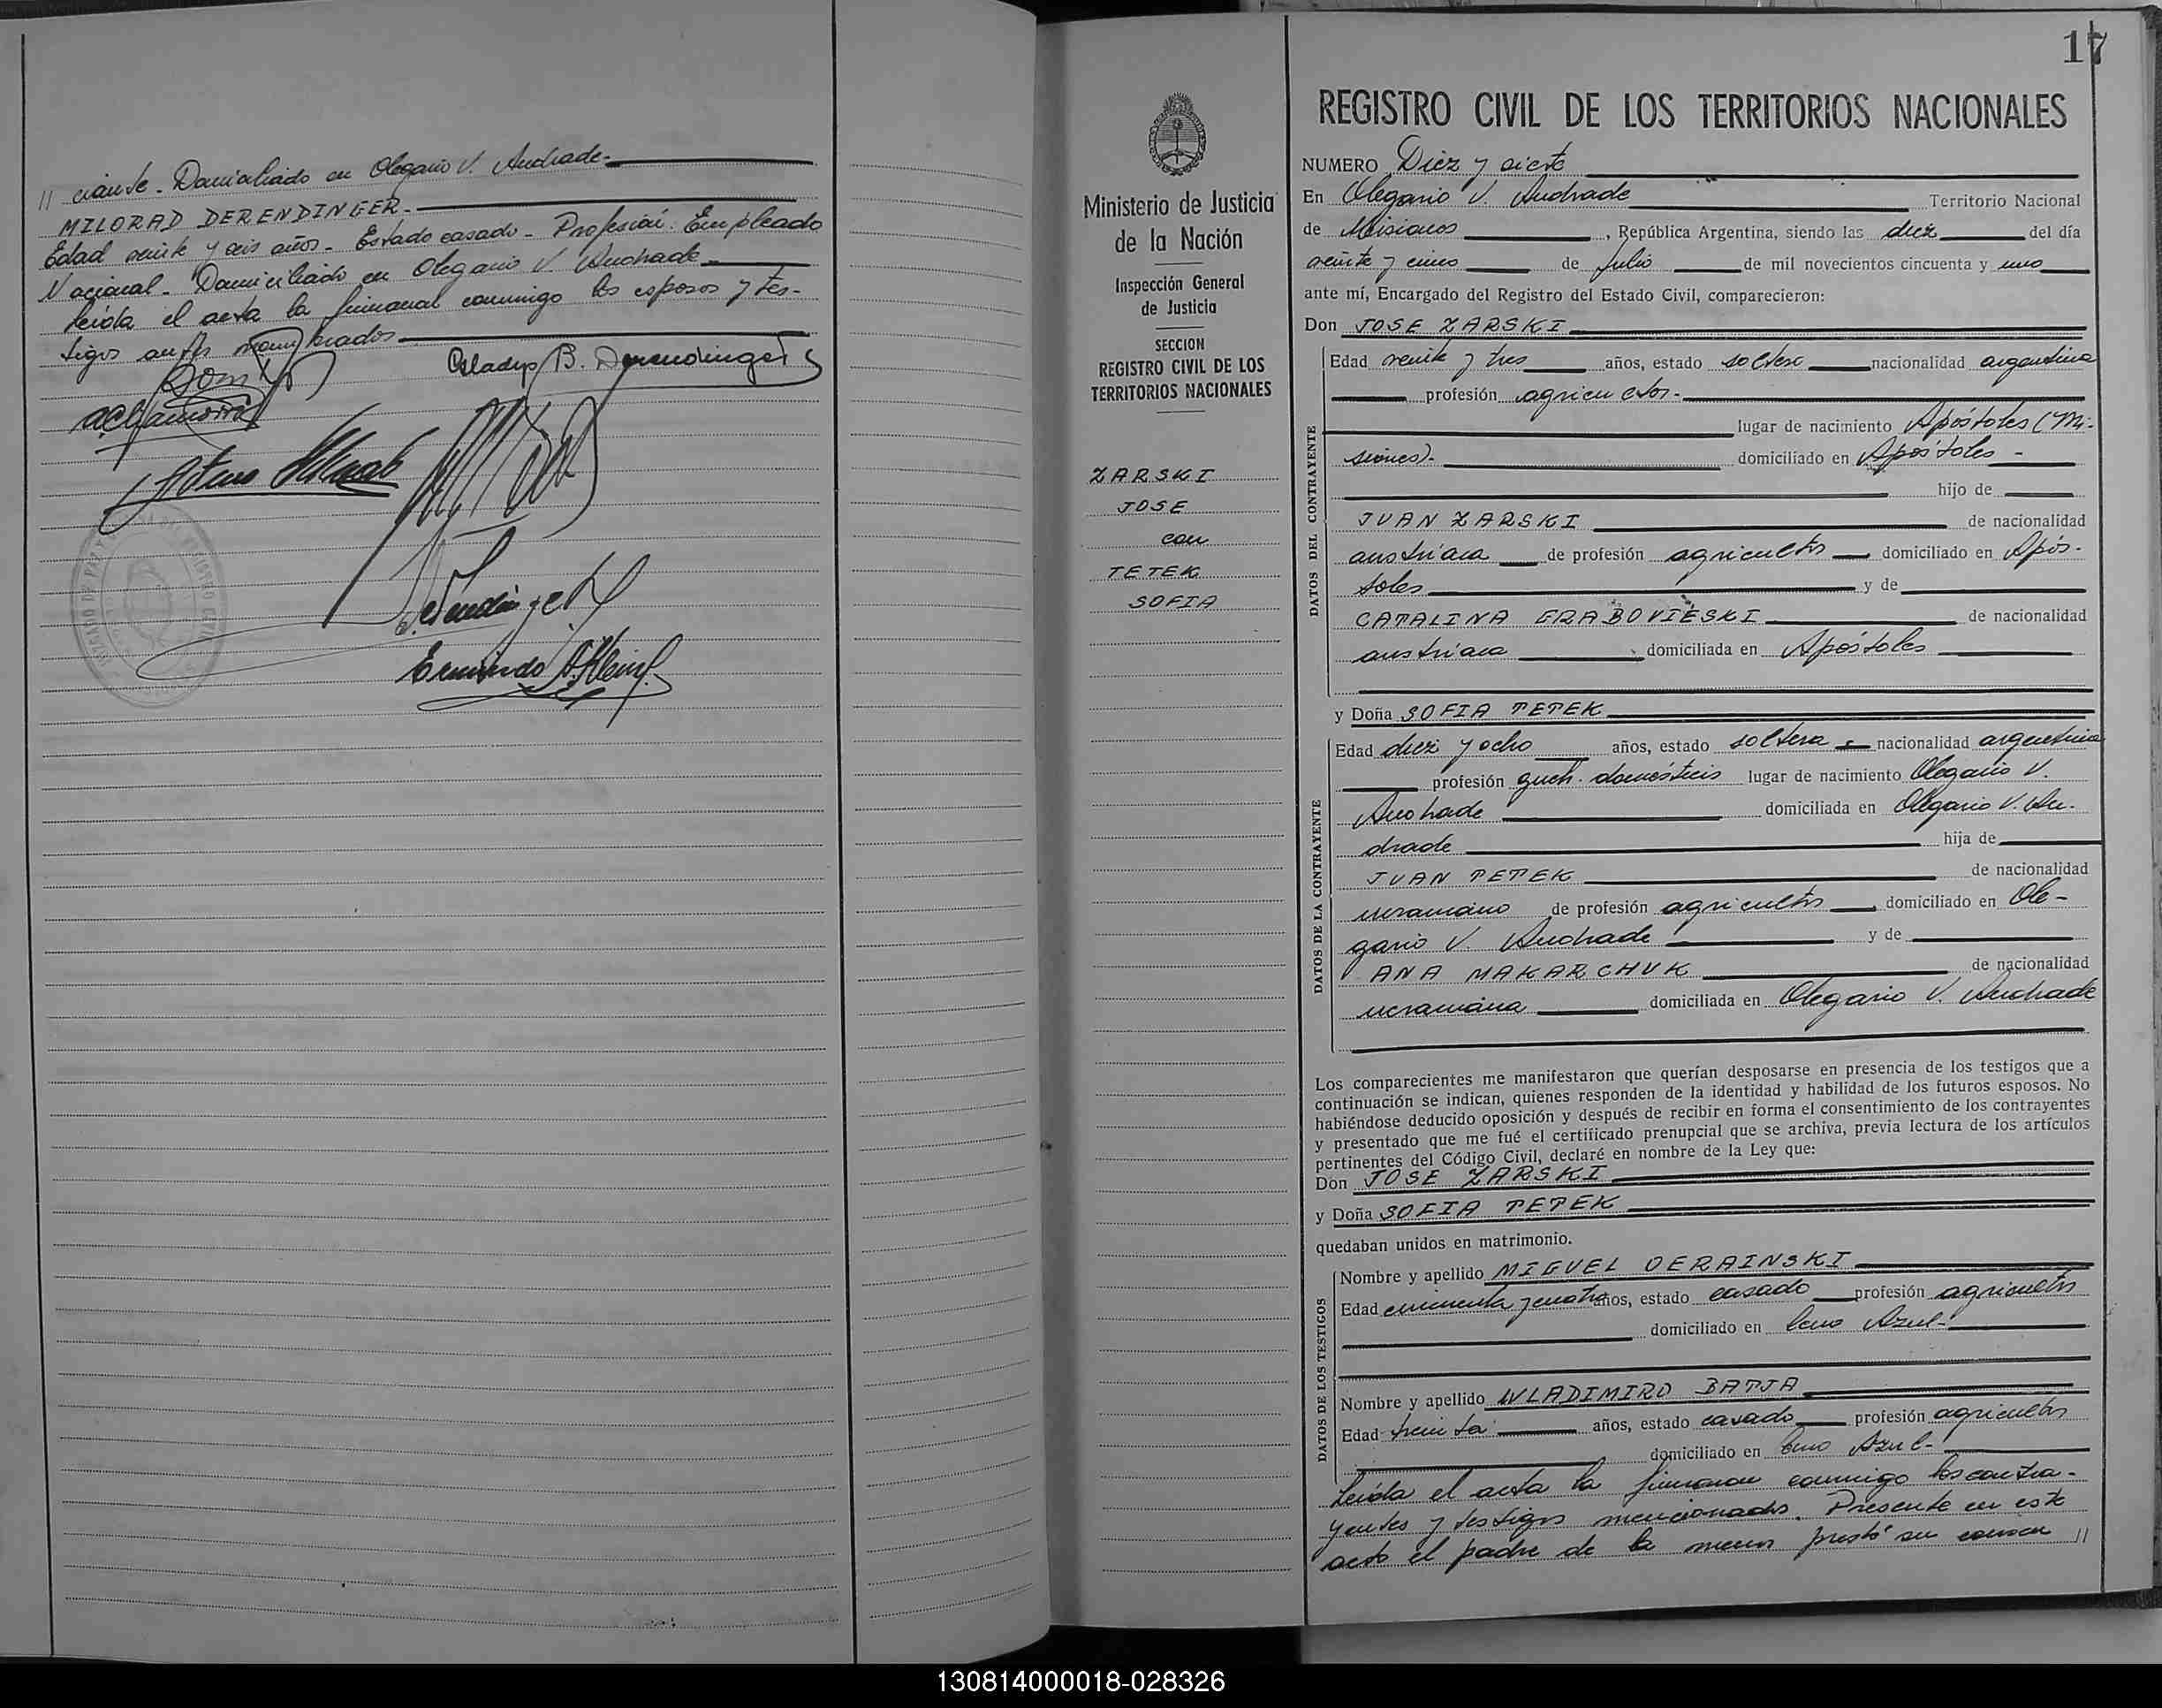 // ciante. Domiciliado en Olegario V. Andrade.
MILORAD DERENDINGER.
Edad veinte y seis años. Estado casado. Profesión: Empleado
Nacional. Domiciliado en Olegario V. Andrade
Leída el acta la firmaron conmigo los esposos y tes-
tigos antes nombrados
Gladys B. Derendinger
Arturo
Derendinger
Ermindo A. Klein
17
REGISTRO CIVIL DE LOS TERRITORIOS NACIONALES
Ministerio de Justicia
de la Nación
Inspección General
de Justicia
SECCION
REGISTRO CIVIL DE LOS
TERRITORIOS NACIONALES
ZARSKI
JOSE
con
TETEK
SOFIA
NUMERO Diez y siete
En Olegario V. Andrade Territorio Nacional
de Misiones, República Argentina, siendo las diez del día
veinte y cinco de Julio de mil novecientos cincuenta y uno
ante mí, Encargado del Registro del Estado Civil, comparecieron:
Don JOSE ZARSKI
DATOS DEL CONTRAYENTE
Edad veinte y tres años, estado soltero nacionalidad argentina
profesión agricultor.
lugar de nacimiento Apóstoles (Mi-
siones). domiciliado en Apóstoles -
hijo de
JUAN ZARSKI de nacionalidad
austríaca de profesión agricultor domiciliado en Após-
toles y de
CATALINA GRABOVIESKI de nacionalidad
austríaca domiciliada en Apóstoles
y Doña SOFIA TETEK
DATOS DE LA CONTRAYENTE
Edad diez y ocho años, estado soltera nacionalidad argentina
profesión queh. domésticos lugar de nacimiento Olegario V.
Andrade domiciliada en Olegario V. An-
drade hija de
JUAN TETEK de nacionalidad
ucraniano de profesión agricultor domiciliado en Ole-
gario V. Andrade y de
ANA MAKARCHUK de nacionalidad
ucraniana domiciliada en Olegario V. Andrade
Los comparecientes me manifestaron que querían desposarse en presencia de los testigos que a
continuación se indican, quienes responden de la identidad y habilidad de los futuros esposos. No
habiéndose deducido oposición y después de recibir en forma el consentimiento de los contrayentes
y presentado que me fué el certificado prenupcial que se archiva, previa lectura de los artículos
pertinentes del Código Civil, declaré en nombre de la Ley que:
Don JOSE ZARSKI
y Doña SOFIA TETEK
quedaban unidos en matrimonio.
DATOS DE LOS TESTIGOS
Nombre y apellido MIGUEL DERAINSKI
Edad cincuenta y cuatro años, estado casado profesión agricultor
domiciliado en Cerro Azul.
Nombre y apellido WLADIMIRO BATJA
Edad treinta años, estado casado profesión agricultor
domiciliado en Cerro Azul.
Leída el acta la firmaron conmigo los contra-
yentes y testigos mencionados. Presente en este
acto el padre de la menor prestó su consen //
130814000018-028326